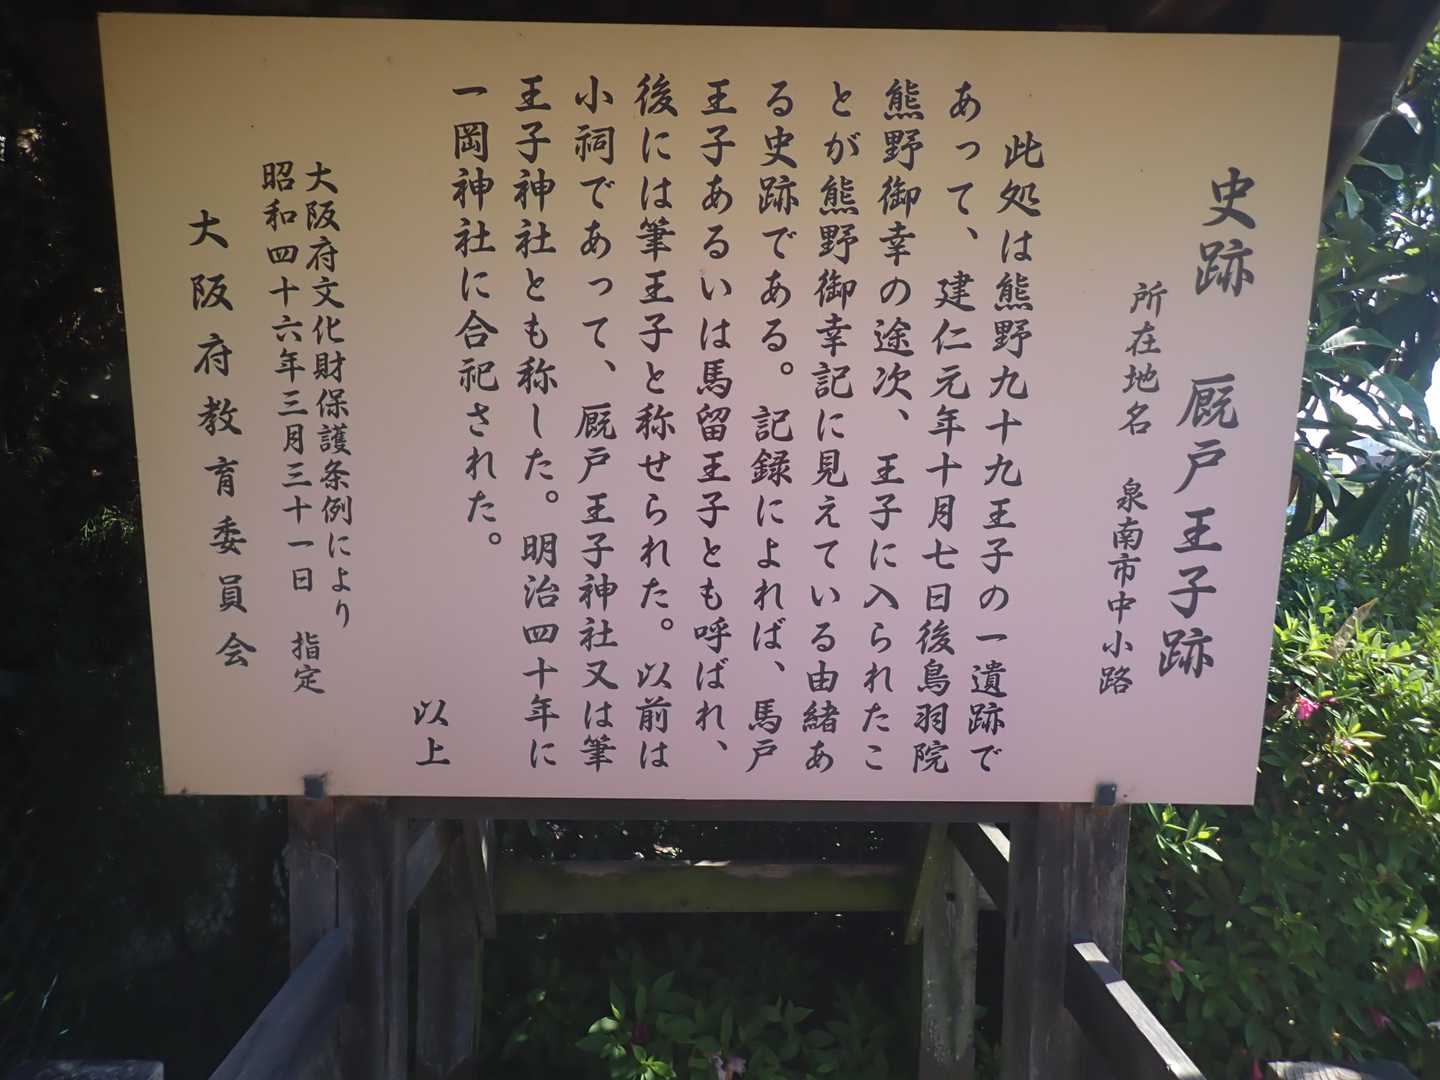 史跡　厩戸王子跡
所在地名　泉南市中小路
此処は熊野九十九王子の一遺跡で
あって、建仁元年十月七日後鳥羽院
熊野御幸の途次、王子に入られたこ
とが熊野御幸記に見えている由緒あ
る史跡である。記録によれば、馬戸
王子あるいは馬留王子とも呼ばれ、
後には筆王子と称せられた。以前は
小祠であって、厩戸王子神社又は筆
王子神社とも称した。明治四十年に
一岡神社に合祀された。
以上
大阪府文化財保護条例により
昭和四十六年三月三十一日　指定
大阪府教育委員会